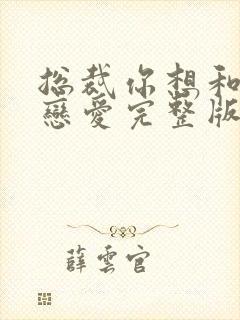 总裁你想和
戀愛完整版
薛雲官